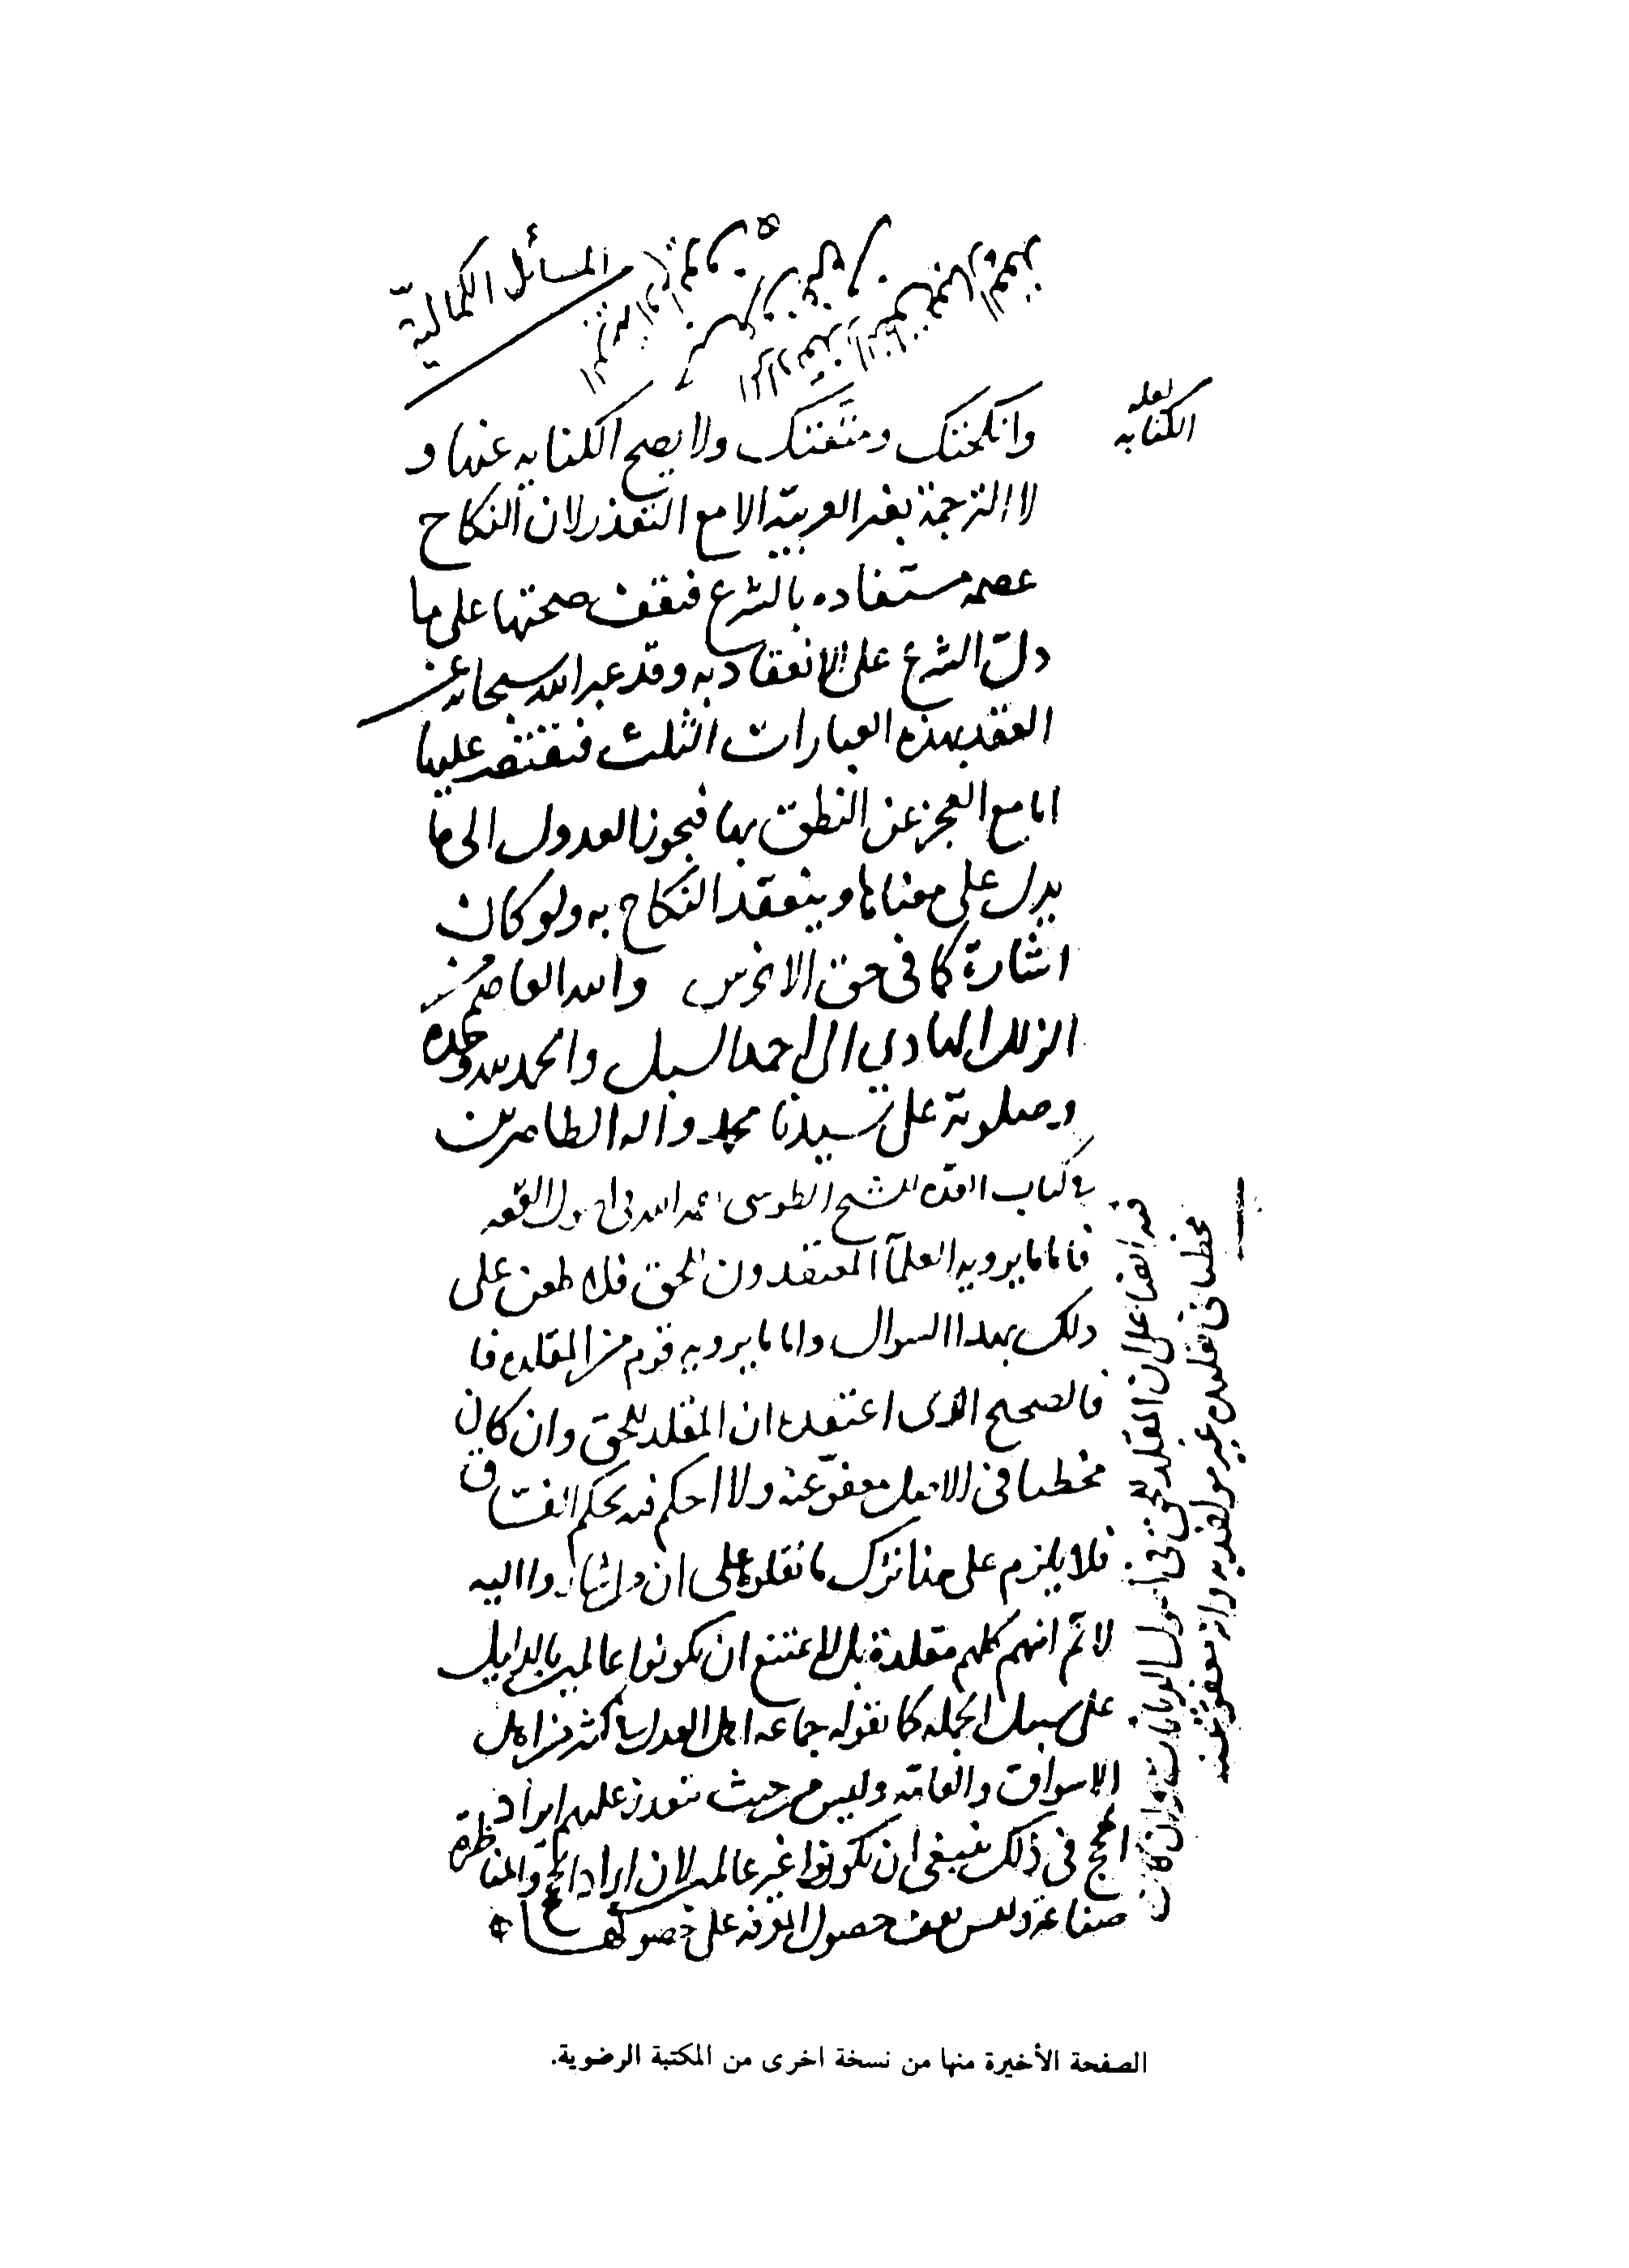 المسائل الكمالية
لعله
الكنايه
وانكحتك ومتعتك ولا يصح الكنايه عنها و
لا الترجمة بغير العربية الا مع التعذر لان النكاح
عصمه مستفاده بالشرع فتقف صحتها على ما
دل الشرع على الانعقاد به وقد عبر الله سبحانه عن
العقد بهذه العبارات الثلث فتقتصر عليها
اما مع العجز عن النطق بها فيجوز العدول الى ما
يدل على معناها وينعقد النكاح به ولو كان
اشارة كما في حق الاخرس والله العاصم من
الزلل الهادي الى احمد السبل والحمد لله وحده
وصلوته على سيدنا محمد واله الطاهرين
في كتاب العدة للشيخ الطوسي رحمه الله في اصول الفقه
فاما ما يرويه العلمآ المعتقدون للحق فلا طعن على
ذلك بهذا السوال واما ما يرويه قوم من المقلده فا
فالصحيح الذي اعتقده ان المقلد للحق وان كان
مخطئا في الاصل معفو عنه ولا احكم فيه بحكم الفساق
فلا يلزم على هذا ترك ما نقلوه على ان من اشاروا اليه
لا نم انهم كلهم مقلدة بل لا يمتنع ان يكونوا عالمين بالدليل
على سبيل الجمله كما نقوله جماعه اهل العدل في كثير من اهل
الاسواق والعامه وليس من حيث تعذر عليهم ايراد
الحجج في ذلك ينبغي ان يكونوا غير عالمين لان ايراد الحجج والمناظرة
صناعة وليس يقف حصول المعرفه على حصولها
فيه ايضا على ان المقلد للحق في اصول الديانات وان كان
مخطئا في تقليده غير مواخذ به وانه معفو عنه
الصفحة الأخيرة منها من نسخة اخرى من المكتبة الرضوية.